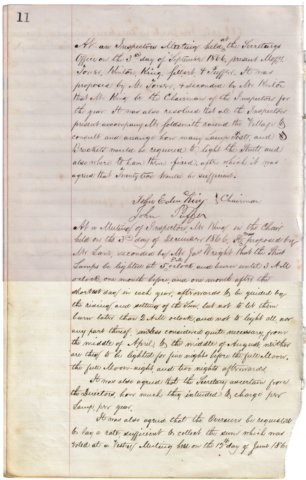 11
At an Inspectors Meeting held at the Secretarys
Office on the 3rd day of September 1866, present Messrs
Towse, Winter, King, & Puffer. It was
proposed by Mr Towse, & seconded by Mr Winter
that Mr King be the Chairman of the Inspectors for
the year. It was also resolved that all the Inspectors
present accompany Mr round the Village to
consult and arrange how many Lamps Posts, and
Brackets would be required to light the Streets and
also where to have them fixed, after which it was
agreed that Twenty two would be sufficient.
John Eden King } Chairman
John Puffer
At a Meeting of Inspectors Mr King in the Chair
held on the 3rd day of December 1866, proposed by
Mr Lane, seconded by Mr Jas Wright that the Street
Lamps be lighted at 5 oclock and burn until 2 A.M.
oclock one month before, and one month after the
shortest day in each year, afterwards to be guided by
the rising and setting of the Sun, but not to let them
burn later than 2 A.M. oclock, and not to light all nor
any part thereof, unless considered quite necessary, from
the middle of April, to the middle of August, neither
are they to be lighted for five nights before the full Moon,
the full Moon night and two nights afterwards.
It was also agreed that the Secretary ascertain from
the Directors how much they intended to charge per
Lamp per year.
It was also agreed that the Overseers be requested
to lay a rate sufficient to collect the sum which was
voted at a Vestry Meeting held on the 13th day of June 1866